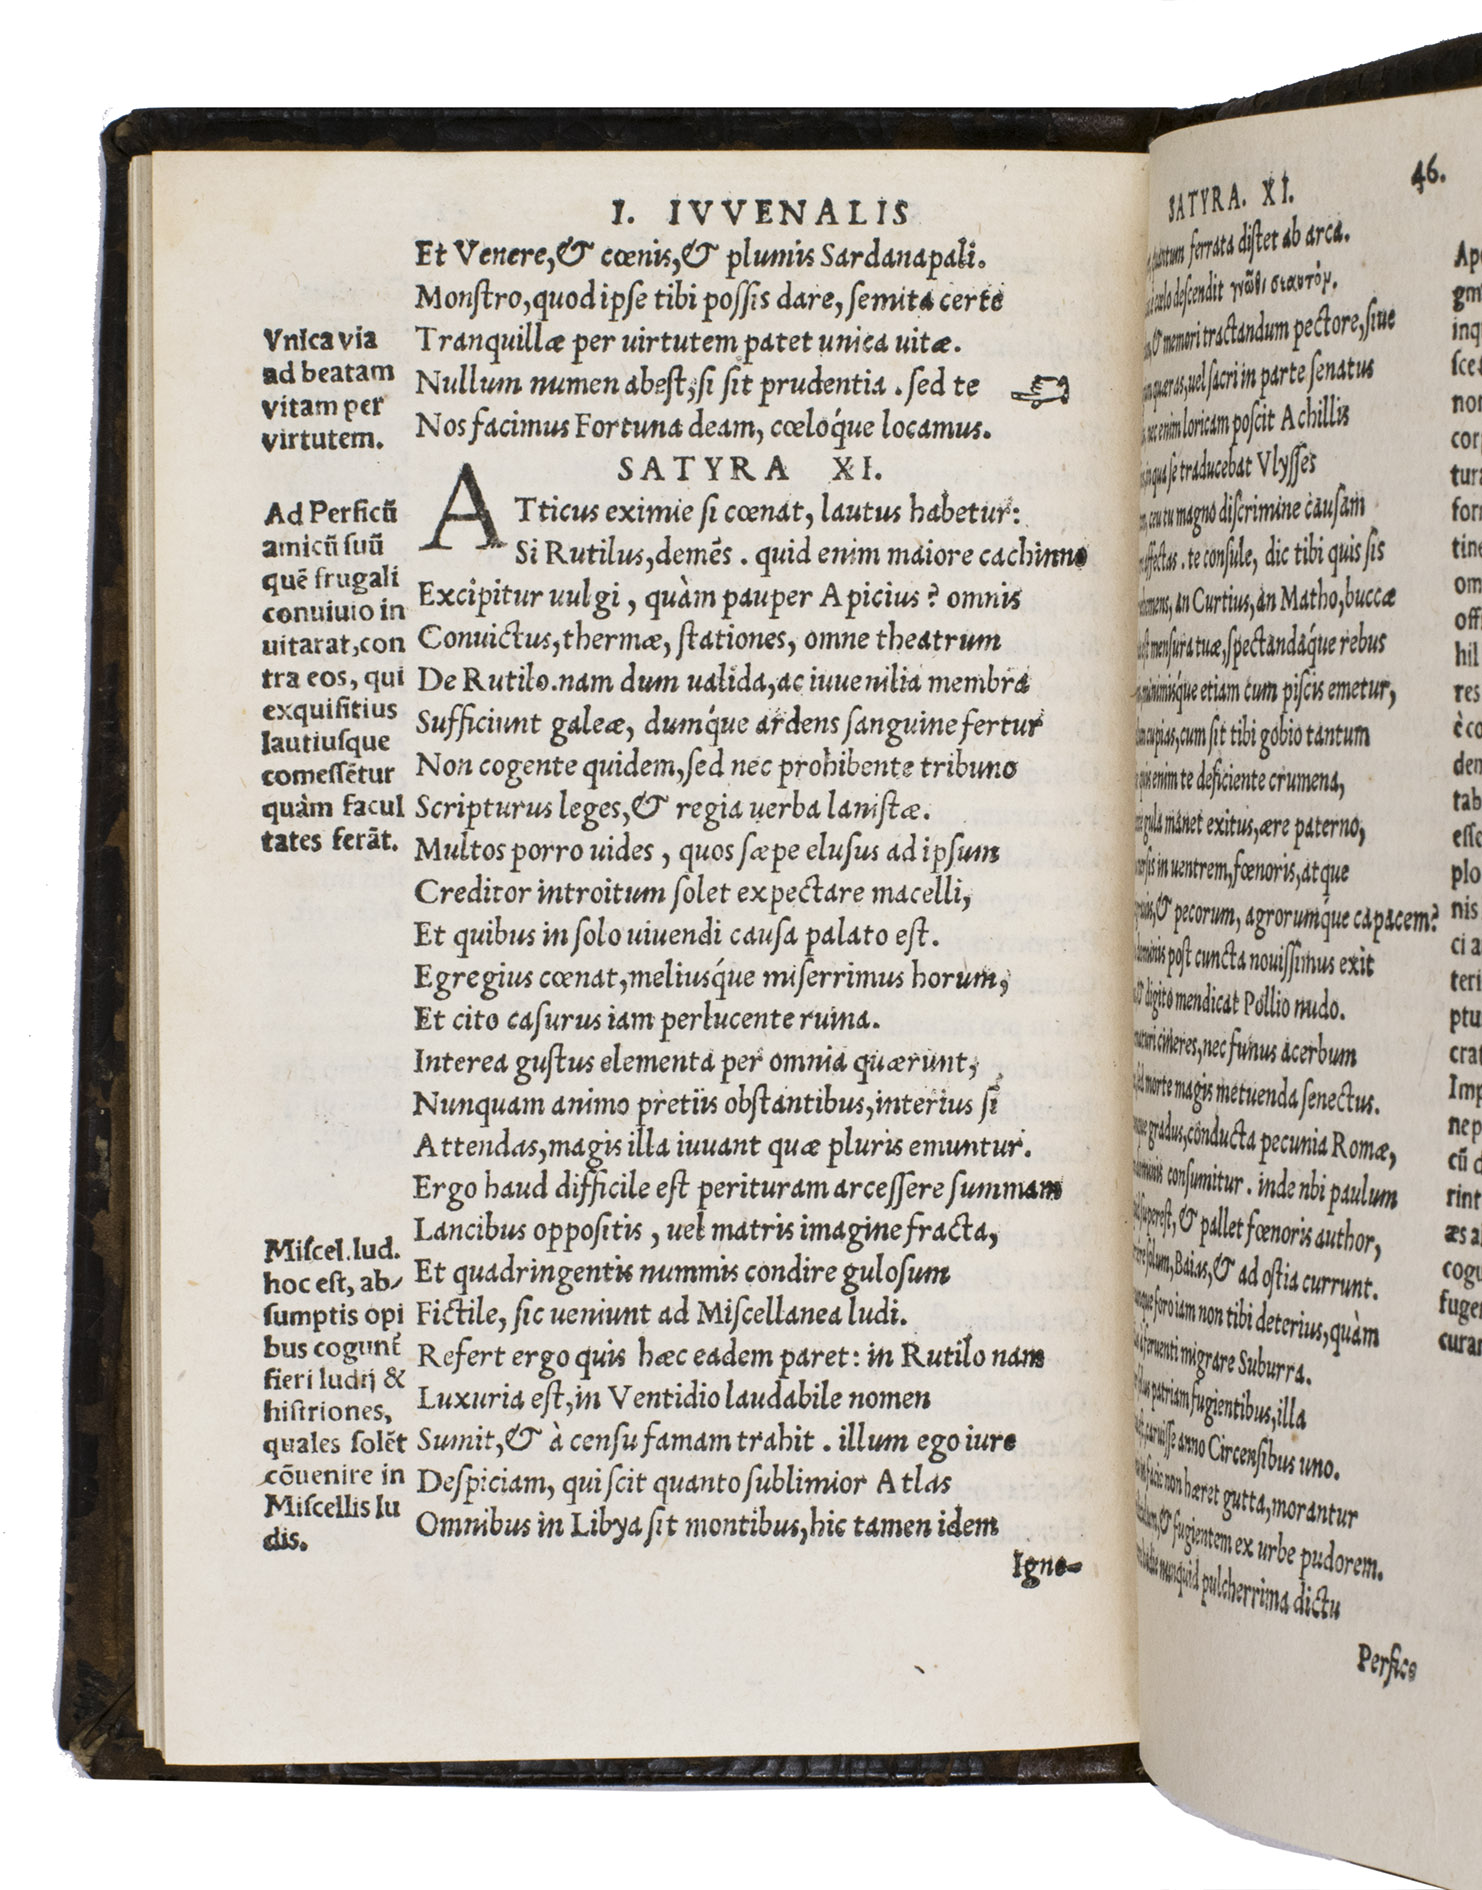 I. IVVENALIS
Et Venere, & cœnis, & plumis Sardanapali.
Monſtro, quod ipſe tibi poſſis dare, ſemita certe
Tranquillæ per uirtutem patet unica uitæ.
Nullum numen abeſt, ſi ſit prudentia. ſed te
Nos facimus Fortuna deam, cœloq́ue locamus.
Vnica via
ad beatam
vitam per
virtutem.
SATYRA XI.
ATticus eximie ſi cœnat, lautus habetur:
Si Rutilus, demẽs. quid enim maiore cachinno
Excipitur uulgi, quàm pauper Apicius? omnis
Conuictus, thermæ, ſtationes, omne theatrum
De Rutilo. nam dum ualida, ac iuuenilia membra
Sufficiunt galeæ, dumq́ue ardens ſanguine fertur
Non cogente quidem, ſed nec prohibente tribuno
Scripturus leges, & regia uerba laniſtæ.
Multos porro uides, quos ſæpe eluſus ad ipſum
Creditor introitum ſolet expectare macelli,
Et quibus in ſolo uiuendi cauſa palato eſt.
Egregius cœnat, meliusq́ue miſerrimus horum,
Et cito caſurus iam perlucente ruina.
Interea guſtus elementa per omnia quærunt,
Nunquam animo pretiis obſtantibus, interius ſi
Attendas, magis illa iuuant quæ pluris emuntur.
Ergo haud difficile eſt perituram arceſſere ſummam
Lancibus oppoſitis, uel matris imagine fracta,
Et quadringentis nummis condire guloſum
Fictile, ſic ueniunt ad Miſcellanea ludi.
Refert ergo quis hæc eadem paret: in Rutilo nam
Luxuria eſt, in Ventidio laudabile nomen
Sumit, & à cenſu famam trahit. illum ego iure
Deſpiciam, qui ſcit quanto ſublimior Atlas
Omnibus in Libya ſit montibus, hic tamen idem
Igno-
Ad Perſicũ
amicũ ſuũ
quẽ frugali
conuiuio in
uitarat, con
tra eos, qui
exquiſitius
lautiuſque
comeſſẽtur
quàm facul
tates ferãt.
Miſcel. lud.
hoc eſt, ab-
ſumptis opi
bus cogunt̃
fieri ludij &
hiſtriones,
quales ſolẽt
cõuenire in
Miſcellis lu
dis.
SATYRA. XI.
46.
ferrata diſtet ab arca.
cœlo deſcendit γνῶθι σεαυτόν.
& memori tractandum pectore, ſiue
quæras, uel ſacri in parte ſenatus
nec enim loricam poſcit Achillis
in qua ſe traducebat Vlyſſes
ceu tu magno diſcrimine cauſam
affectas. te conſule, dic tibi quis ſis
an Curtius, an Matho, buccæ
menſura tuæ, ſpectandaq́ue rebus
etiam cum piſcis emetur,
cupias, cum ſit tibi gobio tantum
quis enim te deficiente crumena,
gula manet exitus, ære paterno,
in uentrem, fœnoris, atque
& pecorum, agrorumq́ue capacem?
poſt cuncta nouiſſimus exit
digito mendicat Pollio nudo.
cineres, nec funus acerbum
morte magis metuenda ſenectus.
gradus, conducta pecunia Romæ,
conſumitur. inde nbi paulum
ſupereſt, & pallet fœnoris author,
ſolum, Baias, & ad oſtia currunt.
foro iam non tibi deterius, quàm
feruenti migrare Suburra.
patriam fugientibus, illa
caruiſſe anno Circenſibus uno.
in facie non hæret gutta, morantur
& fugientem ex urbe pudorem.
nunquid pulcherrima dictu
Perſice